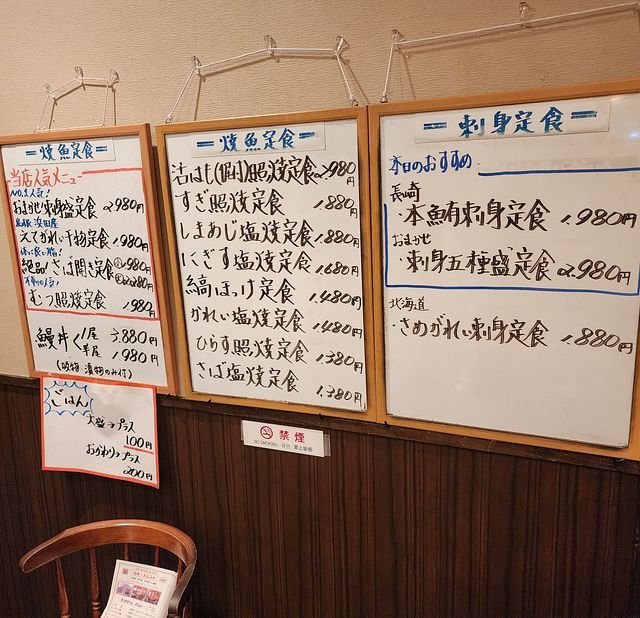 =焼魚定食=
当店人気メニュー
No.1人気!
おまかせ刺身盛定食 2,980円
島根 浜田産
えてかれい干物定食 1,980円
絶品!さば開き定食
むつ照焼定食 1,980円
鰻丼 1尾 3,880円
半尾 1,980円
(吸物・漬物のみ付)
ごはん
大盛→プラス
100円
おかわり→プラス
200円
=焼魚定食=
活はも(1尾付)照焼定食 2,980円
すぎ照焼定食 1,880円
しまあじ塩焼定食 1,880円
にぎす塩焼定食 1,680円
縞ほっけ定食 1,480円
かれい塩焼定食 1,480円
ひらす照焼定食 1,380円
さば塩焼定食 1,380円
禁煙
NO SMOKING
=刺身定食=
本日のおすすめ
長崎
・本鮪刺身定食 1,980円
おまかせ
・刺身五種盛定食 2,980円
北海道
・さめがれい刺身定食 1,880円